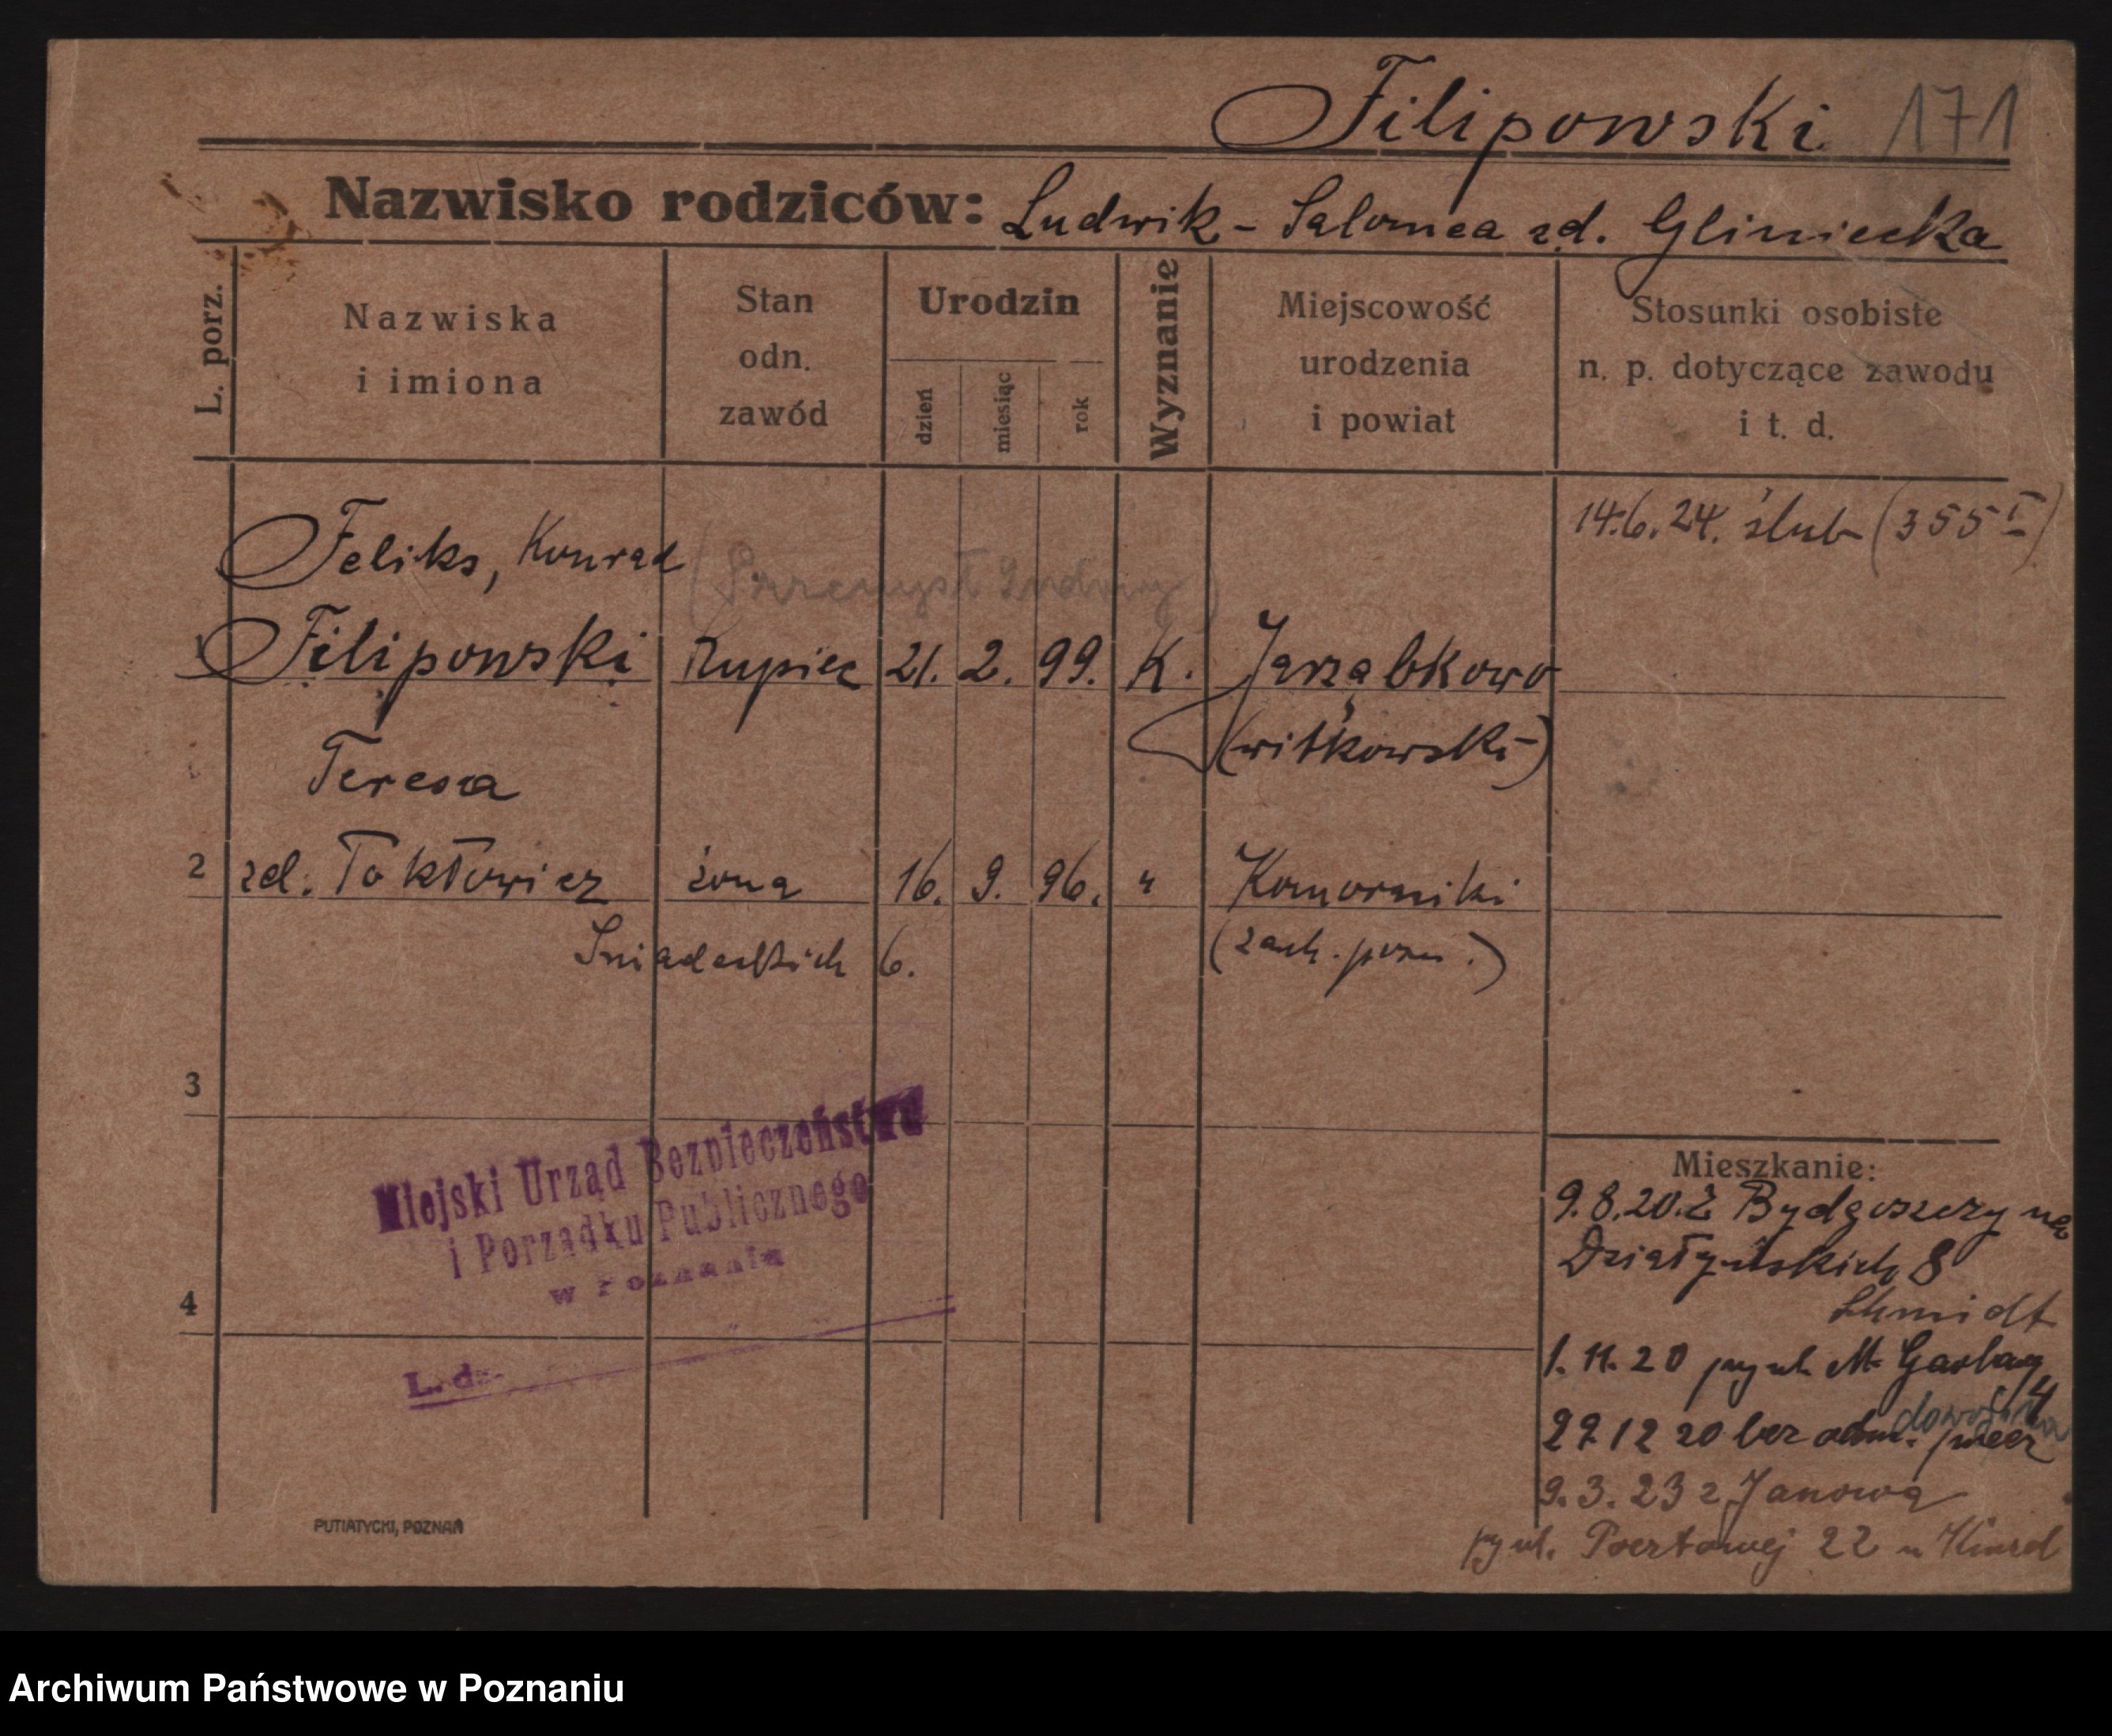 Filipowski 171
Nazwisko rodziców: Ludwik - Salomea zd. Gliniecka
L. porz.
Nazwiska
i imiona
Stan
odn.
zawód
Urodzin
dzień
miesiąc
rok
Wyznanie
Miejscowość
urodzenia
i powiat
Stosunki osobiste
n. p. dotyczące zawodu
i t. d.
14.6.24. ślub (355 I)
Feliks, Konrad
(Przemysł Ludwig)
1 Filipowski Kupiec 21. 2. 99. K. Jarząbkowo
(witkowski)
Teresa
2 zd. Toktowicz żona 16. 9. 96. " Komorniki
Sniadeckich 6. (zach. pozn.)
3
4
Miejski Urząd Bezpieczeństwa
i Porządku Publicznego
w Poznaniu
L. dz.
Mieszkanie:
9.8.20. z Bydgoszczy na
Działyńskich 8
Schmidt
1.11.20 przy ul. M. Garbary 4
29 12 20 bez adm.
9.3.23 z Janowa
przy ul. Pocztowej 22 u
PUTIATYCKI, POZNAŃ
Archiwum Państwowe w Poznaniu